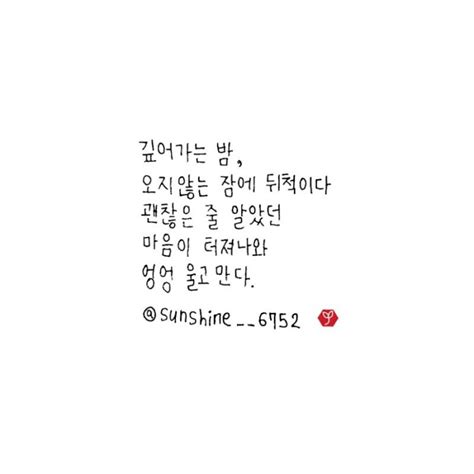 깊어가는 밤,
오지않는 잠에 뒤척이다
괜찮은 줄 알았던
마음이 터져나와
엉엉 울고만다.
@sunshine__6752